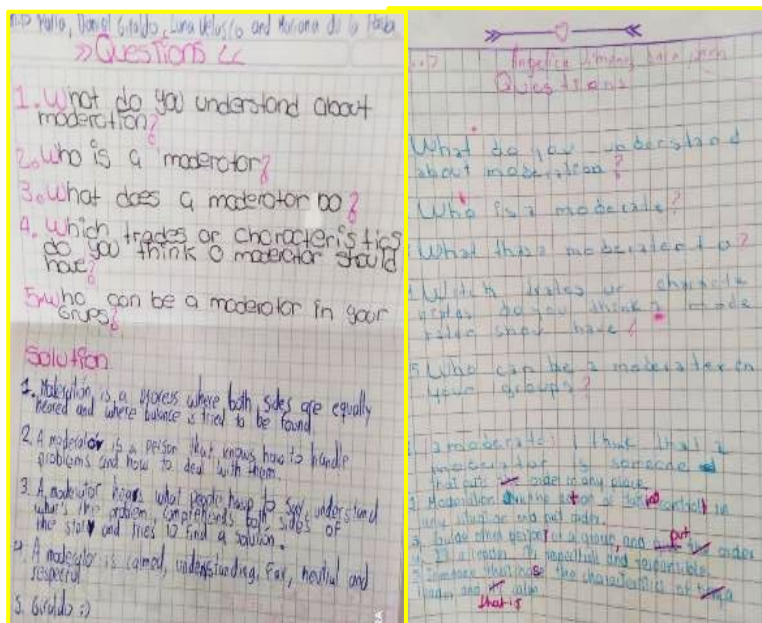 Daniel Giraldo, Luna Velasco and Mariana de la
>> Questions <<
1. What do you understand about
moderation?
2. Who is a moderator?
3. What does a moderator DO?
4. Which trades or characteristics
do you think a moderator should
have?
5. Who can be a moderator in your
Grups?
Solution
1. Moderation is a process where both sides are equally
heared and where balance is tried to be found
2. A moderator is a person that knows how to handle
problems and how to deal with them.
3. A moderator hears what people have to say, understand
what's the problem, comprehends both sides of
the story and tries to find a solution.
4. A moderator is calmed, understanding, Fair, neutral and
respectful
5. Giraldo :)
Angelica
Questions
What do you understand
about moderation?
Who is a moderate?
What a moderater
Witch trates or
do you think a mode
show have?
5 Who can be a moderater in
your groups?
I think that a
moderator is someone
that puts order in any place.
2 Moderation control in
any situation and put order.
of a group, and put order
respectfull and responsible
5 Someone that has the characteristics of
leader and calm
that is